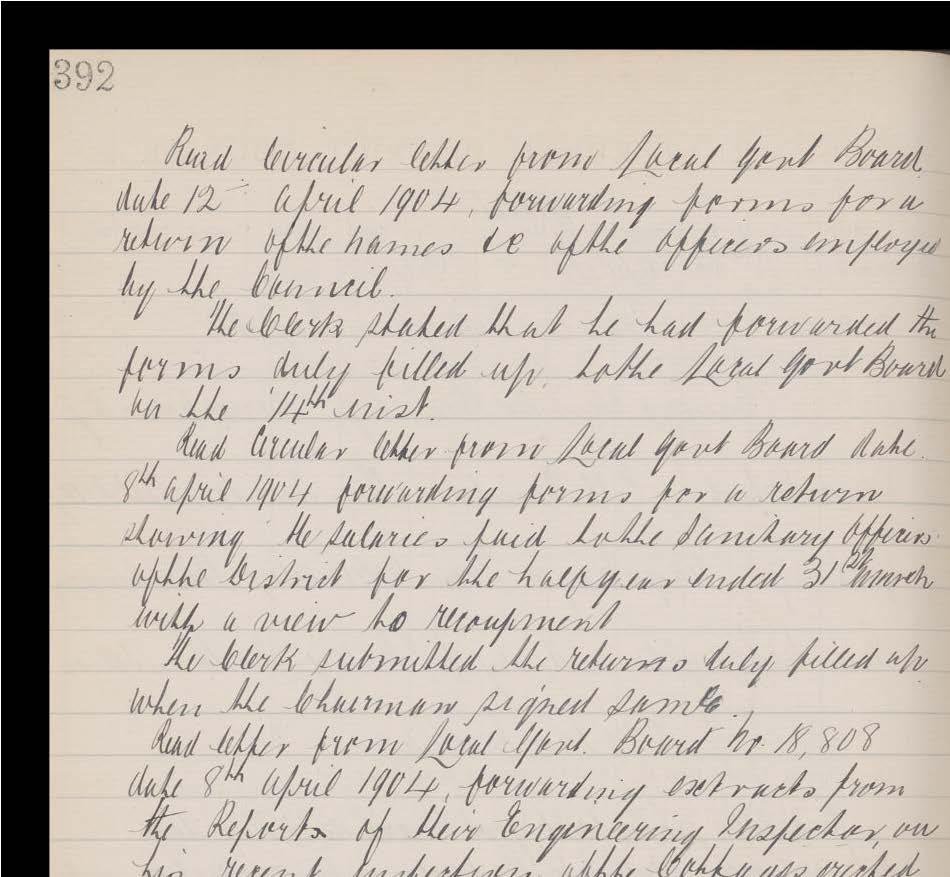 392
Read Circular letter from Local Govt Board
date 12 April 1904, forwarding forms for a
return of the names &c of the Officers employed
by the Council.
The Clerk stated that he had forwarded the
forms duly filled up, to the Local Govt Board
on the 14th inst.
Read Circular letter from Local Govt Board date
8th April 1904 forwarding forms for a return
showing the salaries paid to the Sanitary Officers
of the District for the half year ended 31st March
with a view to recoupment
The Clerk submitted the returns duly filled up
when the Chairman signed same.
Read letter from Local Govt. Board No. 18,808
date 8th April 1904, forwarding extracts from
the Reports of their Engineering Inspector, on
his recent inspection of the Cottages erected